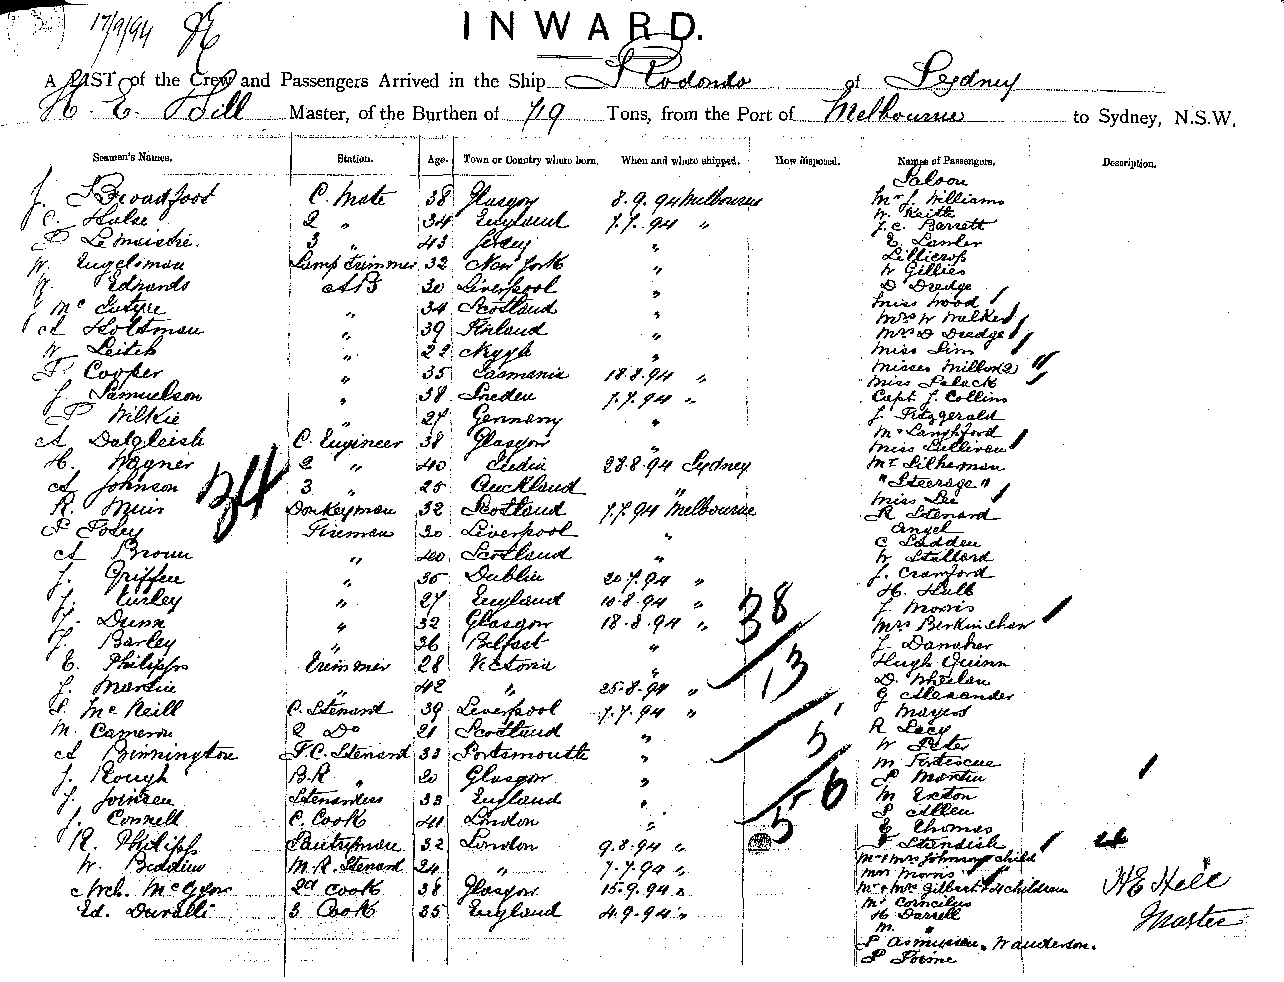 17/9/94
INWARD.
A LIST of the Crew and Passengers Arrived in the Ship Rodondo of Sydney
H. E. Hill Master, of the Burthen of 719 Tons, from the Port of Melbourne to Sydney, N.S.W.
Seamen's Names. Station. Age. Town or Country where born. When and where shipped. How disposed. Names of Passengers. Description.
Saloon
J. Broadfoot C. Mate 38 Glasgow 8.9.94 Melbourne Mr J. Williams
C. Hulse 2 " 34 England 7.7.94 " W. Keith
J. C. Barrett
P Le maistre. 3 " 43 Jersey " E. Lawler
W. Engelsman Lamp Trimmer 32 New York " Lillicrap
W Gillies
Edwards AB 30 Liverpool " D Dredge
Mc Intyre " 34 Scotland " Miss Wood
Mrs W Walker
A Holtsman " 39 Finland " Mrs D Dredge
W. Leitch " 22 " Miss Sim
Misses Millar (2)
F. Cooper " 35 Tasmania 18.8.94 " Miss Selack
J. Samuelson " 38 Sweden 7.7.94 " Capt J. Collins
P Wilkie " 27 Germany " J. Fitzgerald
A Dalgleish C. Engineer 38 Glasgow " Mr Langhford
Miss Sullivan
H. Wagner 2 " 40 India 28.8.94 Sydney Mr Silberman
A Johnson 3 " 25 Auckland " "Steerage"
34
Miss Lee
R. Muir Donkeyman 32 Scotland 7.7.94 Melbourne R Stenard
P Foley Fireman 30 Liverpool " Angel
C Ladden
A Brown " 40 Scotland " W Stallard
J. Griffen " 35 Dublin 20.7.94 " J. Cramford
H. Hull
J. Curley " 27 England 10.8.94 " J Morris
J. Dunn " 32 Glasgow 18.8.94 " Mrs Berkinshaw
38
J. Barley " 36 Belfast " J. Danaher
E. Philipps Trimmer 28 Victoria " Hugh Quinn
13
J. Martin " 42 " 25.8.94 " D. Whelan
G Alexander
P. McNeill C. Steward 39 Liverpool 7.7.94 " Mayers
M. Cameron 2 Do 21 Scotland " R Lacy
5
A Binnington F.C. Steward 33 Portsmouth " W Peter
M Fortescue
J. Rough B.R. " 20 Glasgow " P Martin
J. Joinsen Stewardess 33 England " M Exton
56
J. Connell C. Cook 41 London " P Allen
E Thomas
R. Philipps Pantryman 32 London 9.8.94 " F Standish
4
Mr & Mrs Johnson & child
W. Beddin M.R. Steward 24 " 7.7.94 " Mrs Morris
Arch. McGyn 2d Cook 38 Glasgow 15.9.94 " Mr & Mrs Gilbert & 4 children
HE Hill
Mr Cornelius
Ed. Duralli 3 Cook 35 England 4.9.94 " H Darrell
Master
M. "
P Asmussen. W anderson.
P Foime